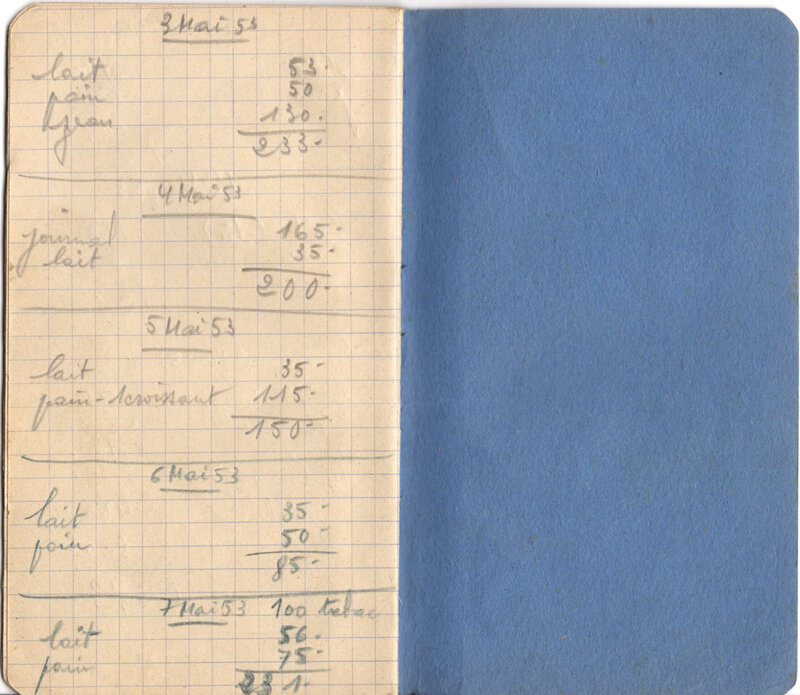 3 Mai 53
lait 53-
pain 50
Jean 130-
233-
4 Mai 53
journal 165-
lait 35-
200-
5 Mai 53
lait 35-
pain-1croissant 115-
150-
6 Mai 53
lait 35-
pain 50-
85-
7 Mai 53 100 tabac
lait 56-
pain 75-
231-